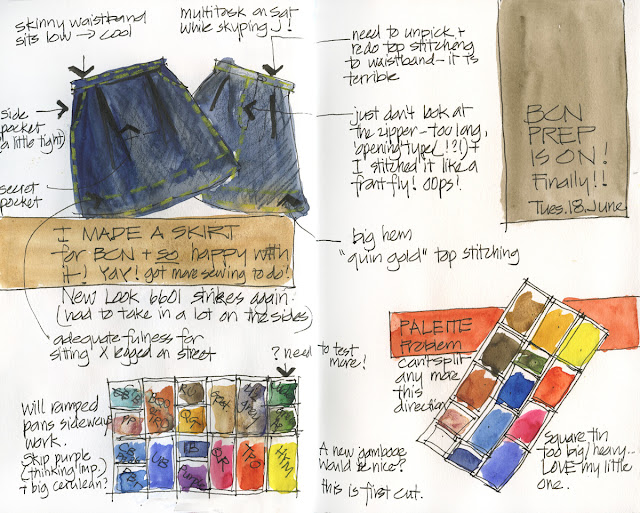 skinny waistband
sits low → cool
multitask on sat
while skyping J!
side
pocket
(a little tight)
secret
pocket
need to unpick +
redo top stitching
to waistband - it is
terrible
just don't look at
the zipper - too long,
opening type(!?!) +
I stitched it like a
front fly! oops!
big hem
"quin gold" top stitching
I MADE A SKIRT
for BCN + so happy with
it! YAY! got more sewing to do!
New Look 6601 strikes again.
(had to take in a lot on the sides)
adequate fulness for
sitting X legged on street
BCN
PREP
IS ON!
Finally!!
Tues. 18. June
? need to test
more!
Will ramped
pans sideways
work.
Skip purple
(thinking imp.)
+ big cerulean?
PB
UB
Purple
QR
TPS
HYM
QGR
A new gamboge
would be nice?
this is first cut.
PALETTE
Problem
can't split
any more
this
direction
square tin
too big/heavy...
LOVE my little
one.